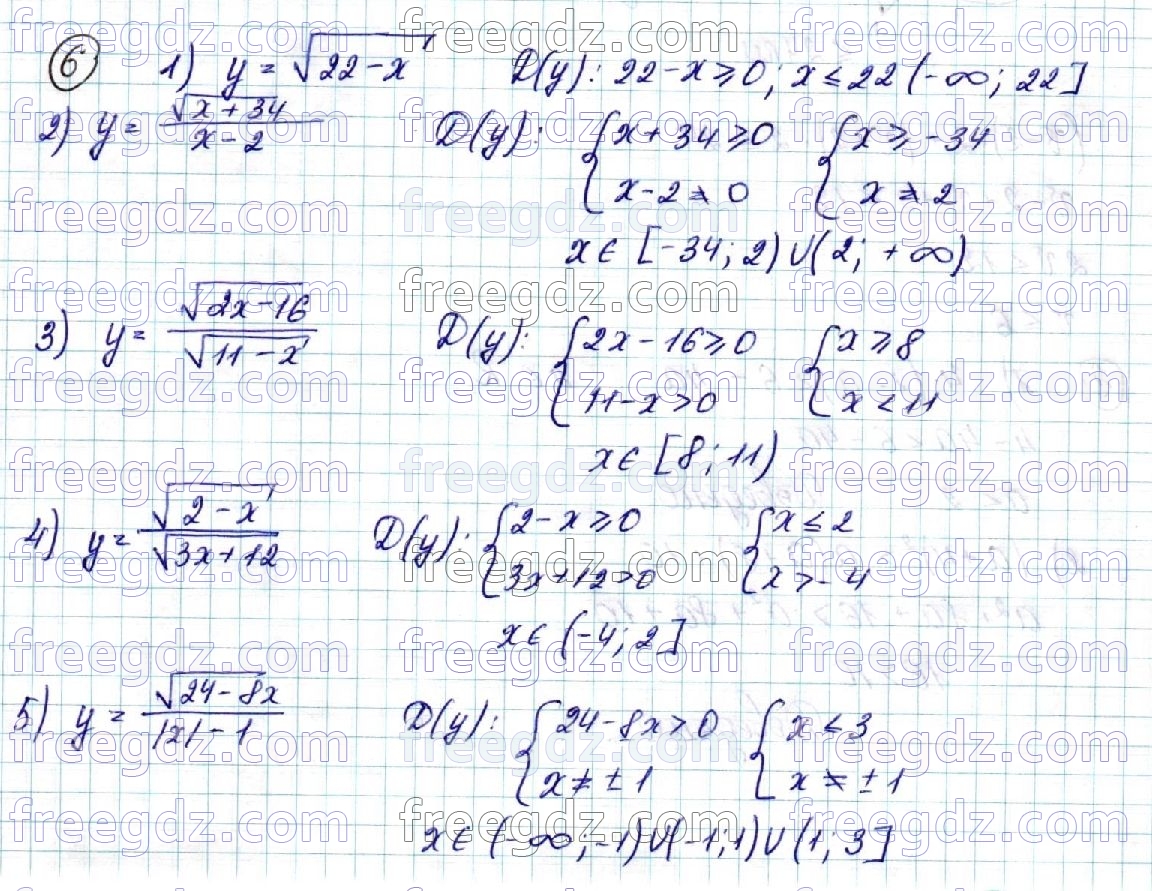 6 1) y = √(22-x) D(y): 22-x ≥ 0; x ≤ 22 (-∞; 22]
2) y = √(x+34)/(x-2) D(y): { x+34 ≥ 0 { x ≥ -34
x-2 ≠ 0 x ≠ 2
x ∈ [-34; 2) ∪ (2; +∞)
3) y = √(2x-16)/√(11-x) D(y): { 2x-16 ≥ 0 { x ≥ 8
11-x > 0 x < 11
x ∈ [8; 11)
4) y = √(2-x)/√(3x+12) D(y): { 2-x ≥ 0 { x ≤ 2
3x+12 > 0 x > -4
x ∈ (-4; 2]
5) y = √(24-8x)/(|x|-1) D(y): { 24-8x > 0 { x ≤ 3
x ≠ ±1 x ≠ ±1
x ∈ (-∞; -1) ∪ (-1; 1) ∪ (1; 3]
freegdz.com